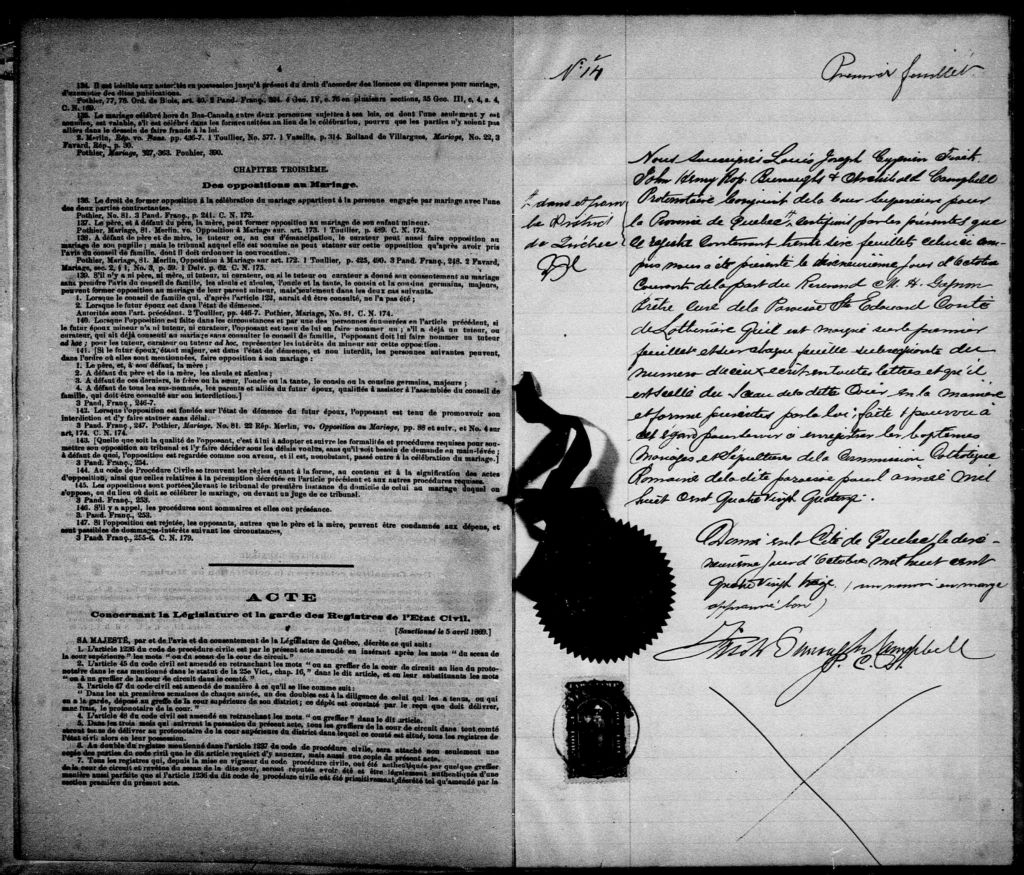 4
134. Il est loisible aux autorités en possession jusqu'à présent du droit d'accorder des licences ou dispenses pour mariage,
d'exempter des dites publications.
Pothier, 77, 78. Ord. de Blois, art. 40. 2 Pand. Franç., 4 Geo. IV, c. 76 en plusieurs sections, 35 Geo. III, c. 4, s. 4,
C. N. 169.
135. Le mariage célébré hors du Bas-Canada entre deux personnes sujettes à ses lois, ou dont l'une seulement y est
soumise, est valable, s'il est célébré dans les formes usitées au lieu de la célébration, pourvu que les parties n'y soient pas
allées dans le dessein de faire fraude à la loi.
2. Merlin, Rép. vo. Banc. pp. 436-7. 1 Toullier, No. 577. 1 Vazeille, p. 314. Rolland de Villargues, Mariage, No. 22, 3
Favard, Rép., p. 30.
Pothier, Mariage, 327, 363. Pouhier, 390.
CHAPITRE TROISIÈME.
Des oppositions au Mariage.
136. Le droit de former opposition à la célébration du mariage appartient à la personne engagée par mariage avec l'une
des deux parties contractantes.
Pothier, No. 81. 3 Pand. Franç., p. 241. C. N. 172.
137. Le père, et à défaut du père, la mère, peut former opposition au mariage de son enfant mineur.
Pothier, Mariage, 81. Merlin, vo. Opposition à Mariage sur art. 173. 1 Toullier, p. 489. C. N. 173.
138. A défaut de père et de mère, le tuteur ou, au cas d'émancipation, le curateur peut aussi faire opposition au
mariage de son pupille; mais le tribunal auquel elle est soumise ne peut statuer sur cette opposition qu'après avoir pris
l'avis du conseil de famille, dont il doit ordonner la convocation.
Pothier, Mariage, 81. Merlin, Opposition à Mariage sur art. 172. 1 Toullier, p. 425, 490. 3 Pand. Franç., 248. 2 Favard,
Mariage, sec. 2, § 1, No. 3, p. 59. 1 Delv. p. 62. C. N. 175.
139. S'il n'y a ni père, ni mère, ni tuteur, ni curateur, ou si le tuteur ou curateur a donné son consentement au mariage
sans prendre l'avis du conseil de famille, les aïeuls et aïeules, l'oncle et la tante, le cousin et la cousine germains, majeurs,
peuvent former opposition au mariage de leur parent mineur, mais seulement dans les deux cas suivants.
1. Lorsque le conseil de famille qui, d'après l'article 122, aurait dû être consulté, ne l'a pas été;
2. Lorsque le futur époux est dans l'état de démence.
Autorités sous l'art. précédent. 2 Toullier, pp. 446-7. Pothier, Mariage, No. 81, C. N. 174.
140. Lorsque l'opposition est faite dans les circonstances et par une des personnes énumérées en l'article précédent, si
le futur époux mineur n'a ni tuteur, ni curateur, l'opposant est tenu de lui en faire nommer un; s'il a déjà un tuteur, ou
curateur, qui ait déjà consenti au mariage sans consulter le conseil de famille, l'opposant doit lui faire nommer un tuteur
ad hoc; pour les tuteur, curateur ou tuteur ad hoc, représenter les intérêts du mineur sur cette opposition.
141. [Si le futur époux, étant majeur, est dans l'état de démence, et non interdit, les personnes suivantes peuvent,
dans l'ordre où elles sont mentionnées, faire opposition à son mariage:
1. Le père, et, à son défaut, la mère;
2. A défaut du père et de la mère, les aïeuls et aïeules;
3. A défaut de ces derniers, le frère ou la sœur, l'oncle ou la tante, le cousin ou la cousine germains, majeurs;
4. A défaut de tous les sus-nommés, les parents et alliés du futur époux, qualifiés à assister à l'assemblée du conseil de
famille, qui doit être consulté sur son interdiction.]
3 Pand. Franç., 246-7.
142. Lorsque l'opposition est fondée sur l'état de démence du futur époux, l'opposant est tenu de promouvoir son
interdiction et d'y faire statuer sans délai.
3 Pand. Franç., 247. Pothier, Mariage, No. 81. 22 Rép. Merlin, vo. Opposition au Mariage, pp. 88 et suiv., et No. 4 sur
art. 174. C. N. 174.
143. [Quelle que soit la qualité de l'opposant, c'est à lui à adopter et suivre les formalités et procédures requises pour soumettre
son opposition au tribunal et l'y faire décider sous les délais voulus, sans qu'il soit besoin de demande en main-levée;
à défaut de quoi, l'opposition est regardée comme non avenue, et il est, nonobstant, passé outre à la célébration du mariage.]
3 Pand. Franç., 254.
144. Au code de Procédure Civile se trouvent les règles quant à la forme, au contenu et à la signification des actes
d'opposition, ainsi que celles relatives à la péremption décrétée en l'article précédent et aux autres procédures requises.
145. Les oppositions sont portées devant le tribunal de première instance du domicile de celui au mariage duquel on
s'oppose, ou du lieu où doit se célébrer le mariage, ou devant un juge de ce tribunal.
3 Pand. Franç., 253.
146. S'il y a appel, les procédures sont sommaires et elles ont préséance.
3 Pand. Franç., 253.
147. Si l'opposition est rejetée, les opposants, autres que le père et la mère, peuvent être condamnés aux dépens, et
sont passibles de dommages-intérêts suivant les circonstances,
3 Pand. Franç., 255-6. C. N. 179.
ACTE
Concernant la Législature et la garde des Registres de l'Etat Civil.
[Sanctionné le 5 avril 1869.]
SA MAJESTÉ, par et de l'avis et du consentement de la Législature de Québec, décrète ce qui suit:
1. L'article 1236 du code de procédure civile est par le présent acte amendé en insérant après les mots "du sceau de
la cour supérieure" les mots "ou du sceau de la cour de circuit."
2. L'article 45 du code civil est amendé en retranchant les mots "ou au greffier de la cour de circuit au lieu du protonotaire
dans le cas mentionné dans le statut de la 25e Vict., chap. 16," dans le dit article, et en leur substituant les mots
"ou à un greffier de la cour de circuit dans le comté."
3. l'article 47 du code civil est amendé de manière à ce qu'il se lise comme suit:
"Dans les six premières semaines de chaque année, un des doubles est à la diligence de celui qui les a tenus, ou qui
en a la garde, déposé au greffe de la cour supérieure de son district; ce dépôt est constaté par le reçu que doit délivrer,
sans frais, le protonotaire de la cour."
4. L'article 48 du code civil est amendé en retranchant les mots "ou greffier" dans le dit article.
5. Dans les trois mois qui suivront la passation du présent acte, tous les greffiers de la cour de circuit dans tout comté
seront tenus de délivrer au protonotaire de la cour supérieure du district dans lequel ce comté est situé, tous les registres de
l'état civil alors en leur possession.
6. Au double du registre mentionné dans l'article 1237 du code de procédure civile, sera attaché non seulement une
copie des parties du code civil que le dit article requiert d'y annexer, mais aussi une copie du présent acte.
7. Tous les registres qui, depuis la mise en vigueur du code procédure civile, ont été authentiqués par quelque greffier
de la cour de circuit et revêtus du sceau de la dite cour, seront réputés avoir été et être légalement authentiqués d'une
manière aussi parfaite que si l'article 1236 du dit code de procédure civile eût été primitivement décrété tel qu'amendé par la
section première du présent acte.
No. 14
Premier feuillet
Nous Soussignés Louis Joseph Cyprien Fiset
John Henry Burroughs & Archibald Campbell
Protonotaire Conjoint de la Cour Superieure pour
la Province de Quebec, certifions par les présentes que
le registre Contenant trente deux feuillets celui ci compris
nous a été présenté le dix neuvième jour d'Octobre
Courant de la part du Reverend M. H. Gagnon
Prêtre Curé de la Paroisse St Edouard Comté
de Lotbinière Qu'il est marqué sur le premier
feuillet et sur chaque feuille subsequente du
numero d'iceux écrit en toute lettres et qu'il
est scellé du Sceau de la dite Cour en la maniere
et forme prescrites par la loi: faite & pourvu à
cet égard pour servir à enregistrer les baptemes
Mariages et Sepultures de la Communion Catholique
Romaine de la dite paroisse pour l'année Mil
huit Cent Quatre Vingt Quatorze.
& dans et pour
le District
de Quebec
Donné en la Cité de Quebec, le dix
neuvième jour d'Octobre Mil huit cent
Quatre Vingt treize (un renvoi en marge
approuvé bon)
Fiset Burroughs Campbell
P. C. S.